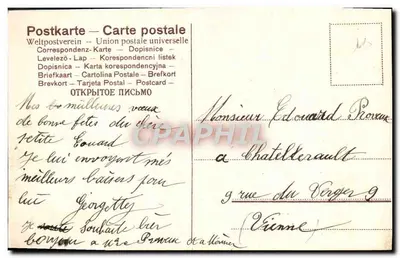 Postkarte — Carte postale
Weltpostverein — Union postale universelle
Correspondenz-Karte — Dopisnice
Levelező-Lap — Korespondenční lístek
Dopisnica — Karta korespondencyjna —
Briefkaart — Cartolina Postale — Brefkort
Brevkort — Tarjeta Postal — Postcard —
ОТКРЫТОЕ ПИСЬМО
Mes meilleures vœux
de bonne fêtes du
petite Eouard
Je lui envoyent més
meilleurs baisers pour
lui
Georgette
Je souhaite
bonjour a
Monsieur Edouard
a Chatellerault
9 rue du Verger 9
(Vienne)
CPHARTI